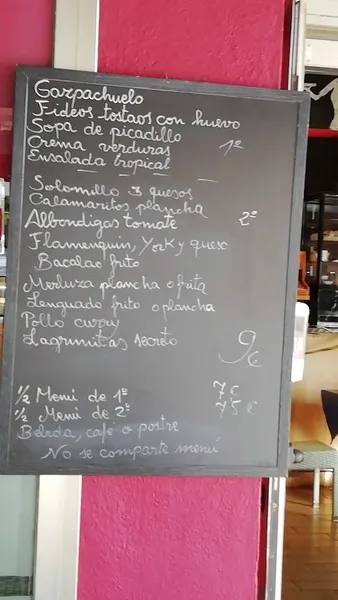 Gazpachuelo
Fideos tostaos con huevo
Sopa de picadillo
Crema verduras 1º
Ensalada tropical
Solomillo 3 quesos
Calamaritos plancha
Albondigas tomate 2º
Flamenquin, York y queso
Bacalao frito
Merluza plancha o frita
Lenguado frito o plancha
Pollo curry
Lagrimitas secreto
9€
1/2 Menú de 1º 7€
1/2 Menú de 2º 7'5€
Bebida, café o postre
No se comparte menú